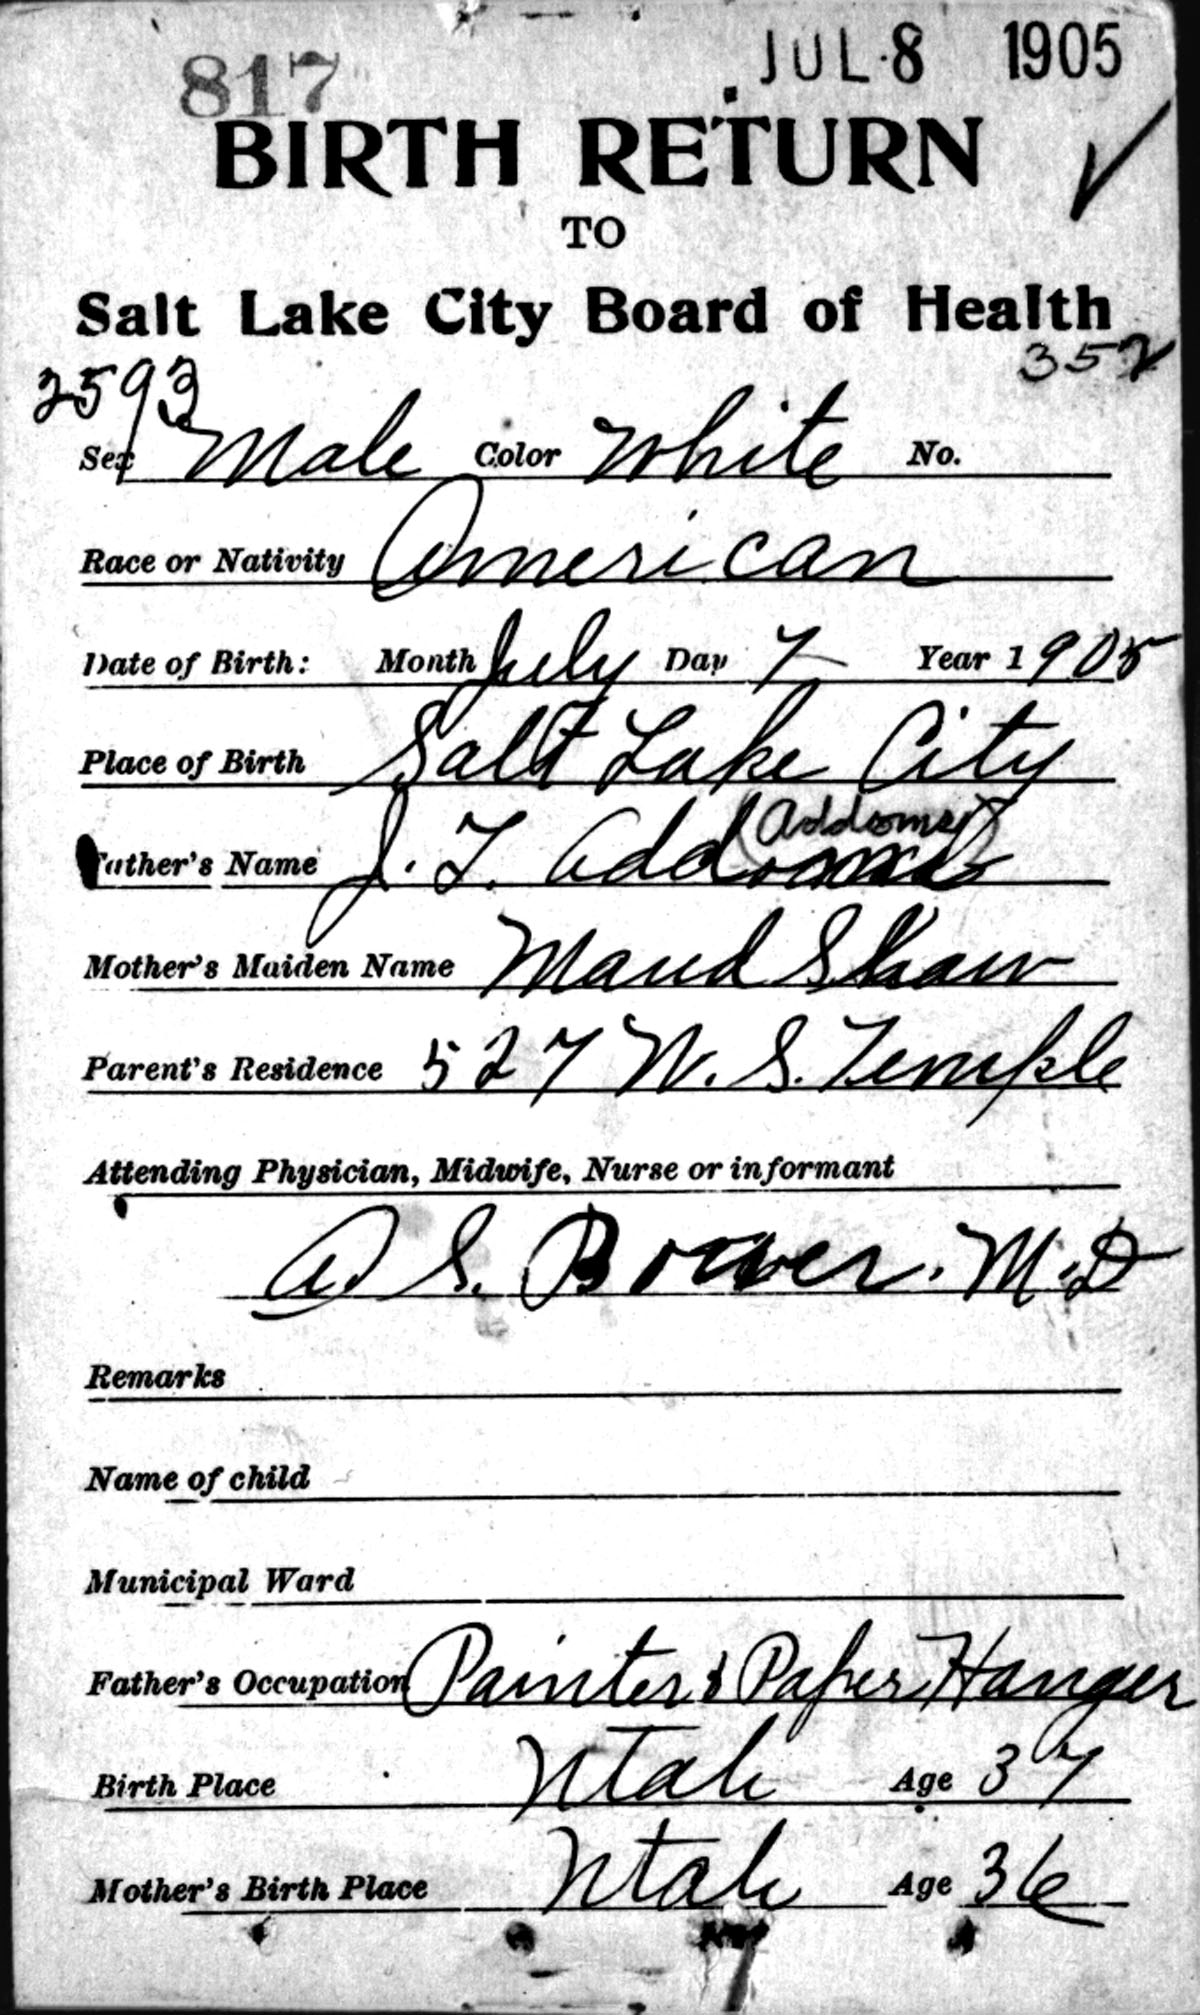 817 JUL 8 1905
BIRTH RETURN
TO
Salt Lake City Board of Health
2593 352
Sex Male Color White No.
Race or Nativity American
Date of Birth: Month July Day 7 Year 1905
Place of Birth Salt Lake City
(Addoms)
Father's Name J. T. Addoms
Mother's Maiden Name Maud Shaw
Parent's Residence 527 W. S. Temple
Attending Physician, Midwife, Nurse or informant
A S. Bower. M.D
Remarks
Name of child
Municipal Ward
Father's Occupation Painter & Paper Hanger
Birth Place Utah Age 37
Mother's Birth Place Utah Age 36